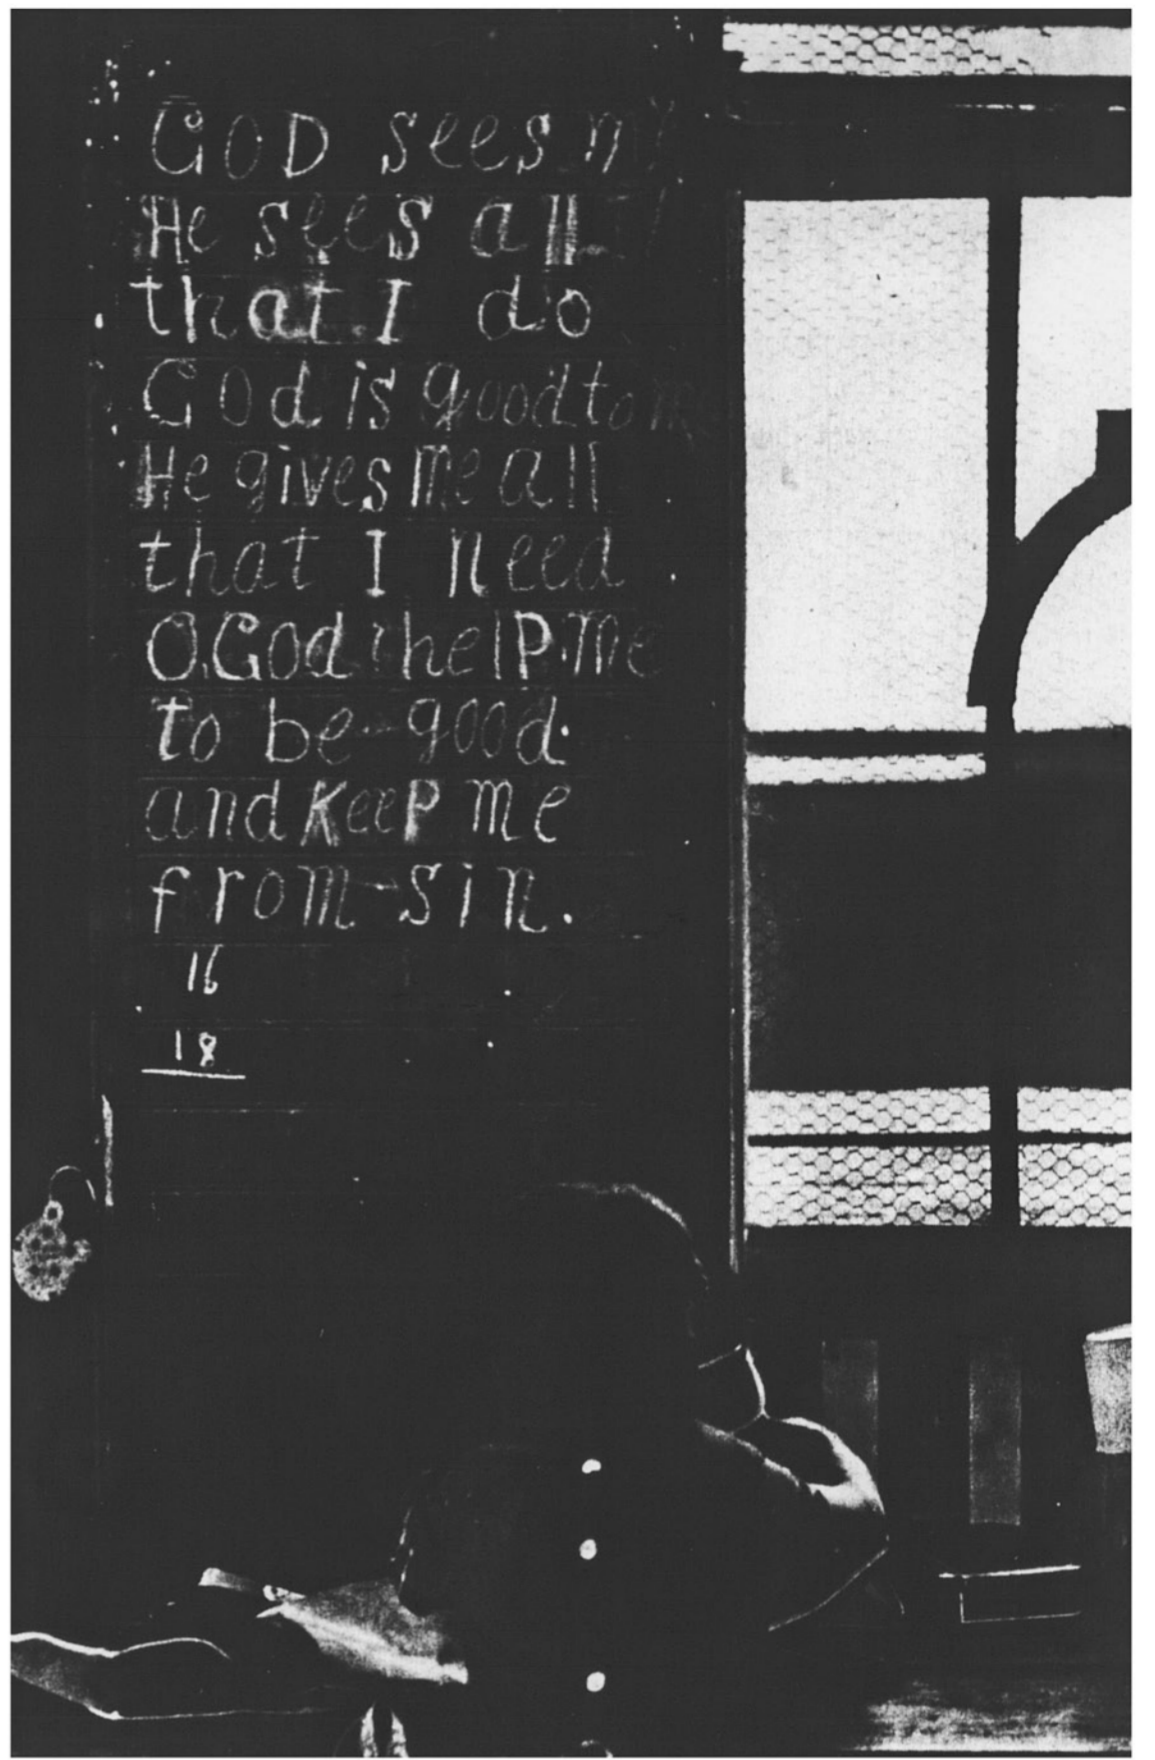 GOD sees
He sees all
that I do
GOd is good to me
He gives me all
that I need
O.God help me
to be good.
and KeeP me
from sin.
16
18